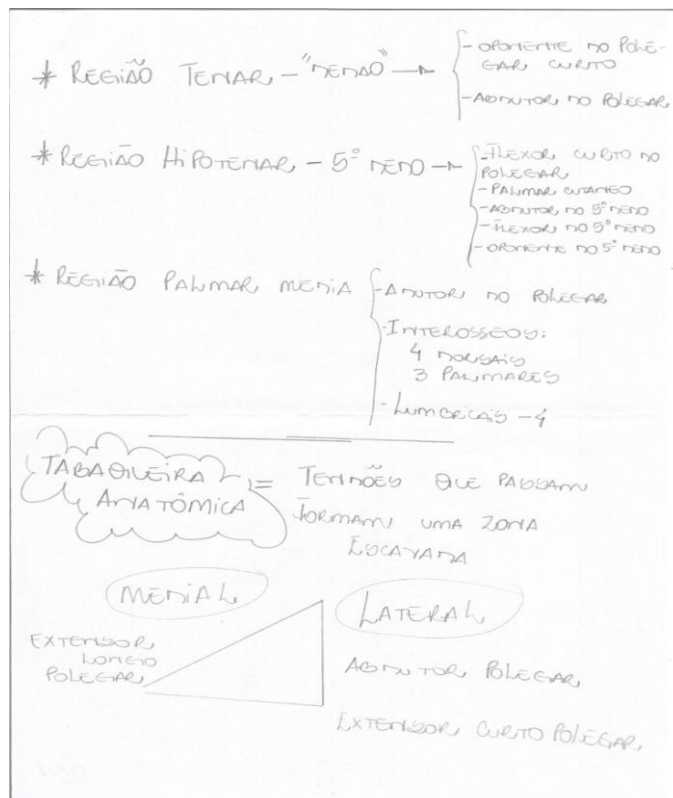 * REGIÃO TENAR - "DEDÃO" →
- OPONENTE DO POLE-
GAR CURTO
- ABDUTOR DO POLEGAR
* REGIÃO HIPOTENAR - 5º DEDO →
- FLEXOR CURTO DO
POLEGAR
- PALMAR CUTANEO
- ABDUTOR DO 5º DEDO
- FLEXOR DO 5º DEDO
- OPONENTE DO 5º DEDO
* REGIÃO PALMAR MEDIA
- ADUTOR DO POLEGAR
- INTEROSSEOS:
4 DORSAIS
3 PALMARES
- LUMBRICAIS - 4
TABAQUEIRA
ANATÔMICA
= TENDÕES QUE PASSAM
FORMAM UMA ZONA
ESCAVADA
MEDIAL
LATERAL
EXTENSOR
LONGO
POLEGAR
ABDUTOR POLEGAR
EXTENSOR CURTO POLEGAR